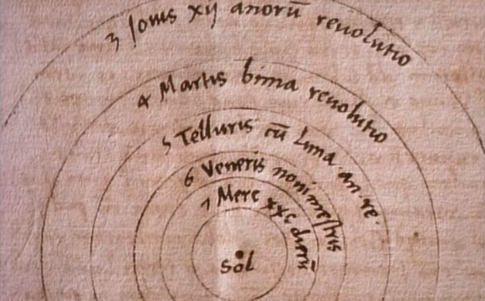 3 Jouis xij anorũ reuolutio
4 Martis bima reuolutio
5 Telluris cũ Luna an. re.
6 Veneris nonimestris
7 Merc xxc dierũ
Sol